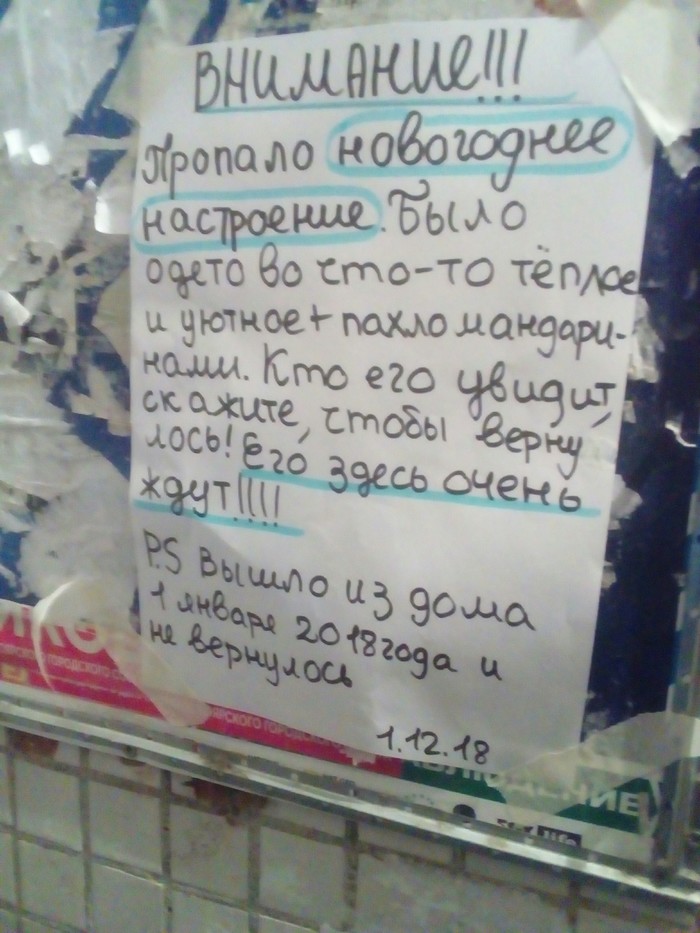 ВНИМАНИЕ!!!
Пропало новогоднее
настроение. Было
одето во что-то тёплое
и уютное + пахло мандари-
нами. Кто его увидит,
скажите, чтобы верну
лось! Его здесь очень
ждут!!!!
P.S Вышло из дома
1 января 2018 года и
не вернулось
1.12.18